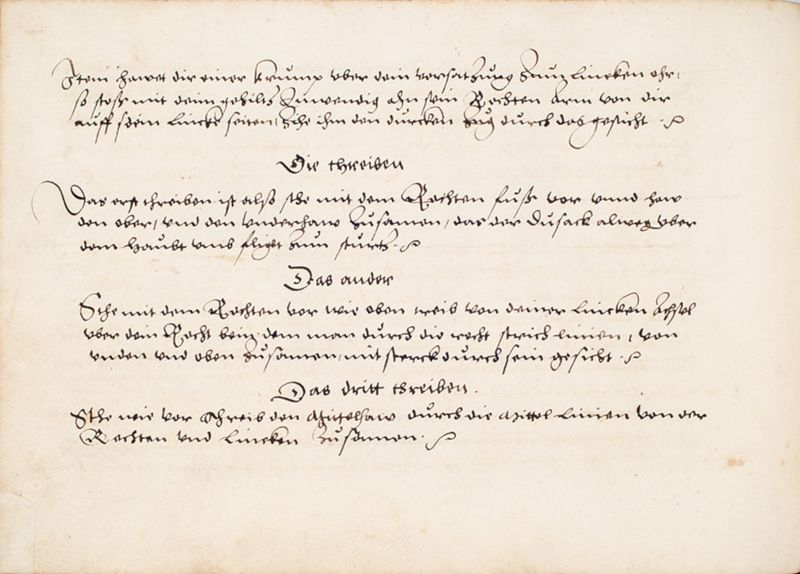 Item hawet dir einer krump vber dein vorsatzung zum lincken ohr,
so stoss mit deim gehiltz Inwendig ahn sein Rechten Arm von dir
auff sein lincke seiten, Zihe ihm den durcken Zug durch das gesicht.
Die threiben
Das erst threiben ist alss sthe mit dem Rechten fuss vor vnnd haw
den ober, vnd den vnderhaw Zusamen, das der Dusack alweg vber
dem Haubt vmb fliget Zum sturtz.
Das ander
Sthe mit dem Rechten vor wie oben treib von deiner lincken Achsel
vber dein Recht bein dem man durch die recht strich linien, von
vnden vnd oben Zusamen, mit sterck durch sein gesicht.
Das dritt threiben.
Sthe wie vor threib den Mittelhaw durch die Mittel Linien von der
Rechten vnd Lincken Zusamen.